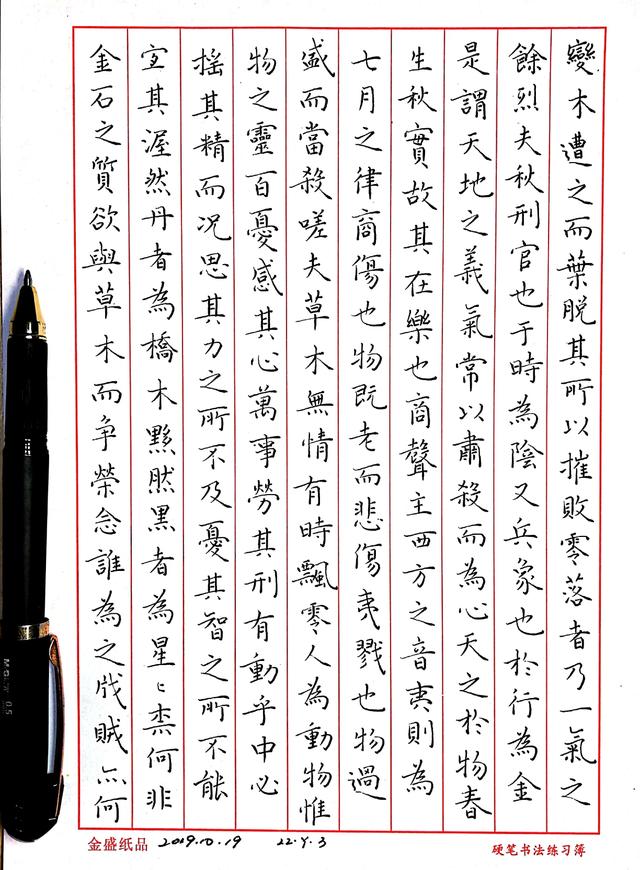 變木遭之而葉脱其所以摧敗零落者乃一氣之
餘烈夫秋刑官也于時為陰又兵象也於行為金
是謂天地之義氣常以肅殺而為心天之於物春
生秋實故其在樂也商聲主西方之音夷則為
七月之律商傷也物既老而悲傷夷戮也物過
盛而當殺嗟夫草木無情有時飄零人為動物惟
物之靈百憂感其心萬事勞其刑有動乎中必
搖其精而况思其力之所不及憂其智之所不能
宜其渥然丹者為橋木黟然黑者為星〻柰何非
金石之質欲與草木而争榮念誰為之戕賊亦何
金盛纸品 2019.10.19 22.Y.3
硬笔书法练习簿
0.5